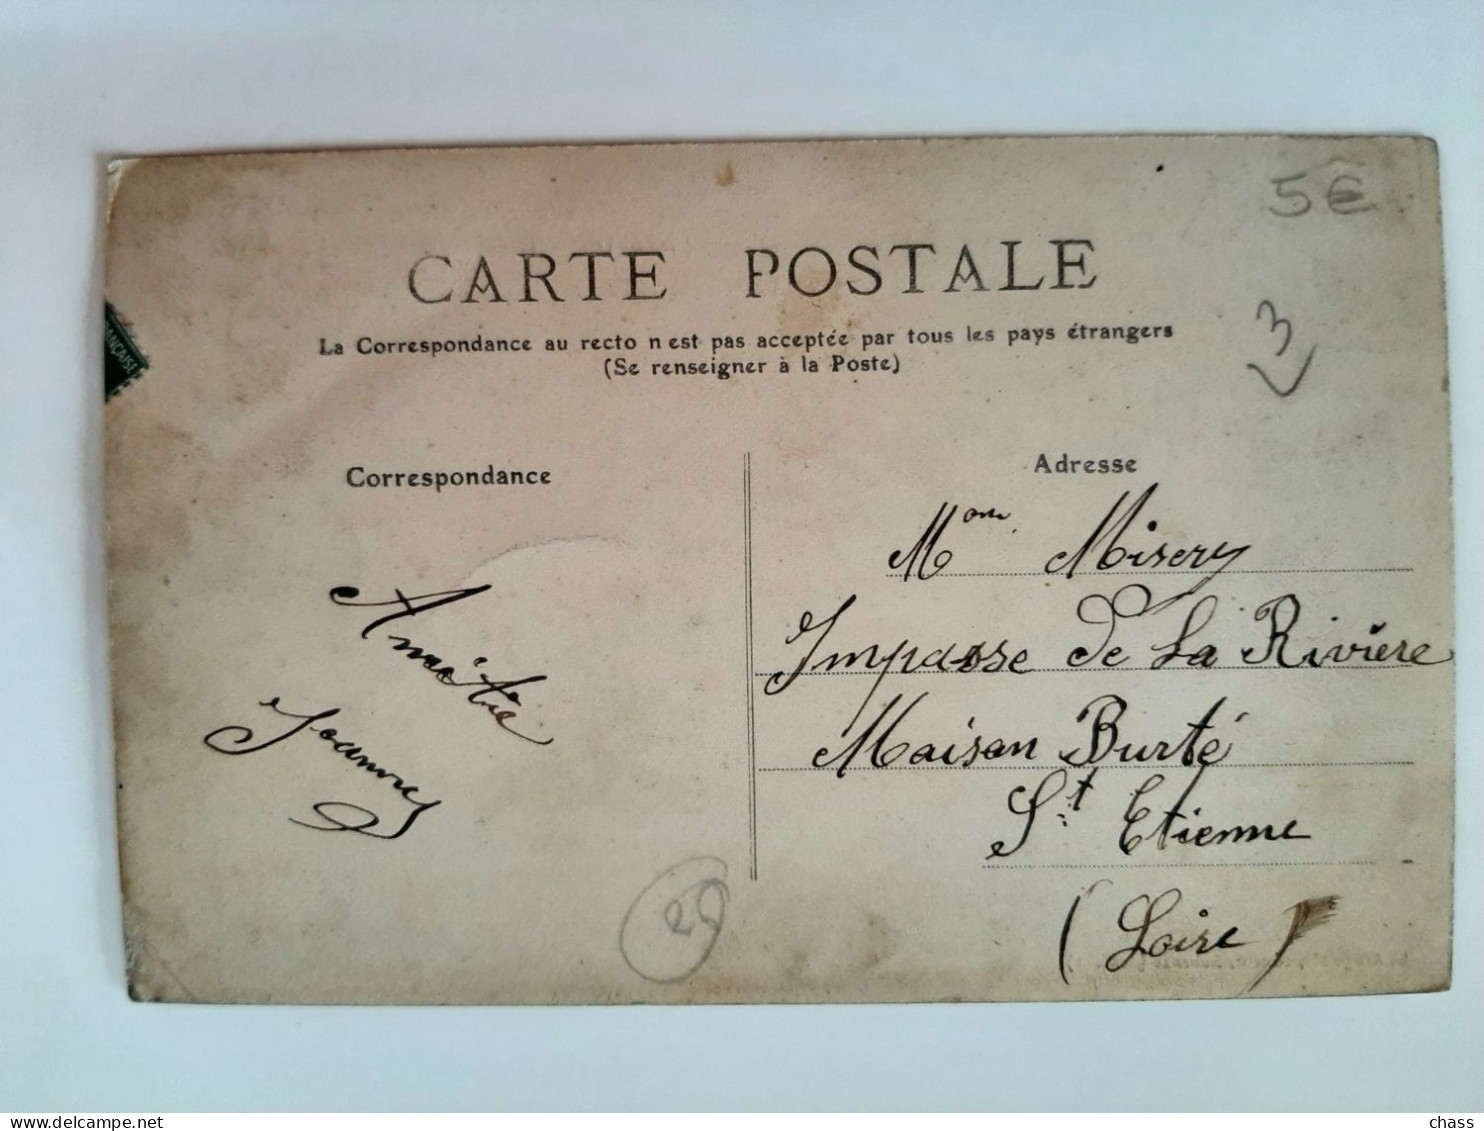 5€
CARTE POSTALE
La Correspondance au recto n'est pas acceptée par tous les pays étrangers
(Se renseigner à la Poste)
3
NÇAISE
Correspondance
Adresse
Amitié
Joannes
Mme Misery
Impasse de La Rivière
Maison Burté
St Etienne
(Loire)
delcampe.net
chass